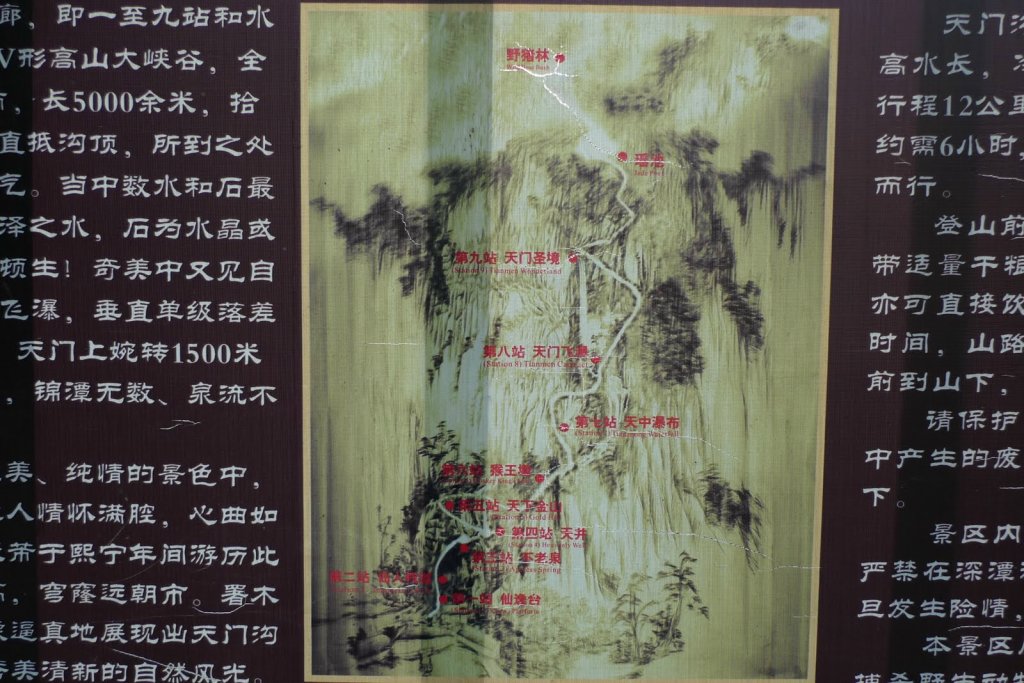 廊，即一至九站和水
V形高山大峡谷，全
，长5000余米，拾
直抵沟顶，所到之处
气。当中数水和石最
泽之水，石为水晶或
顿生！奇美中又见自
飞瀑，垂直单级落差
天门上婉转1500米
，锦潭无数、泉流不
美、纯情的景色中，
人情怀满腔，心曲如
芾于熙宁年间游历此
，穹窿远朝市。著木
逼真地展现出天门沟
美清新的自然风光。
野猪林
瑶池
Jade Pool
第九站 天门圣境
(Station 9) Tianmen Wonderland
第八站 天门飞瀑
(Station 8) Tianmen
第七站 天中瀑布
(Station 7) Tianzhong Waterfall
猴王
第五站 天下金山
第四站 天井
(Station 4) Heavenly Well
第三站 不老泉
Spring
第二站
第一站 仙逸台
天门沟
高水长，
行程12公里
约需6小时，
而行。
登山前
带适量干粮
亦可直接饮
时间，山路
前到山下，
请保护
中产生的废
下。
景区内
严禁在深潭
旦发生险情，
本景区